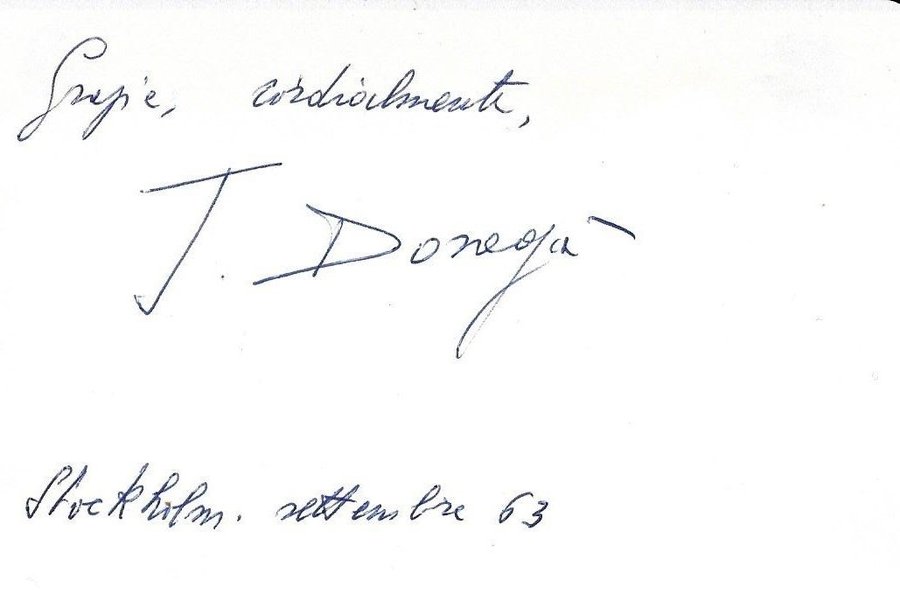 Grazie, cordialmente,
T. Donegà
Stockholm. settembre 63